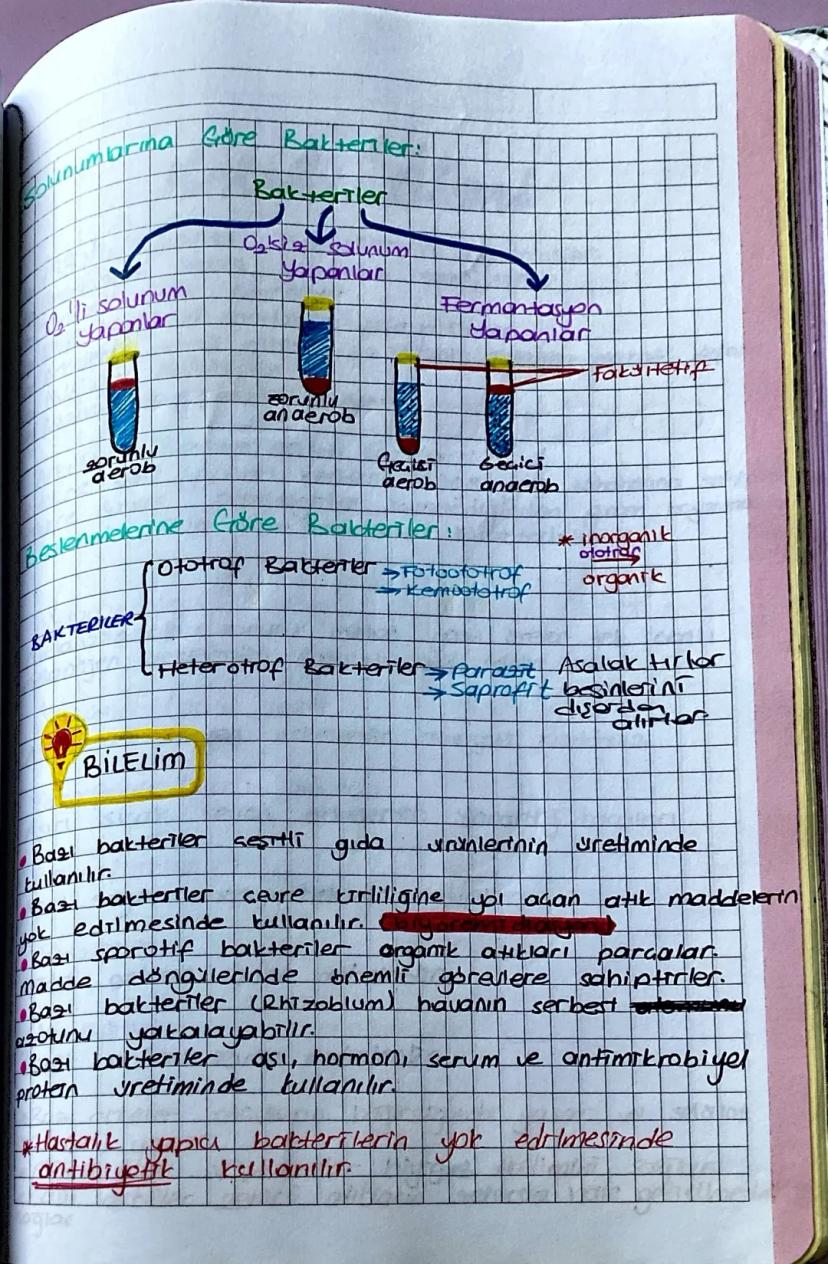 Solunumlarına Göre Bakteriler:
Bakteriler
O₂'li solunum
yapanlar
O₂'siz solunum
yapanlar
Fermantasyon
yapanlar
zorunlu
aerob
zorunlu
anaerob
Geçici
aerob
Geçici
anaerob
Fakültetif
Beslenmelerine Göre Bakteriler:
BAKTERİLER
Ototrof Bakteriler → Fotoototrof
→ Kemoototrof
* inorganik
ototrof
organik
Heterotrof Bakteriler → Parazit
→ Saprofit
Asalaktırlar
besinlerini
dışardan
alırlar
BİLELİM
• Bazı bakteriler çeşitli gıda ürünlerinin üretiminde
kullanılır.
• Bazı bakteriler çevre kirliligine yol açan atık maddelerin
yok edilmesinde kullanılır. (biyoremidiasyon)
• Bazı sporotif bakteriler organik atıkları parçalar.
madde döngülerinde önemli görevlere sahiptirler.
• Bazı bakteriler (Rhizobium) havanın serbest
azotunu yakalayabilir.
• Bazı bakteriler aşı, hormon, serum ve antimikrobiyel
protein üretiminde kullanılır.
* Hastalık yapıcı bakterilerin yok edilmesinde
antibiyetik kullanılır.